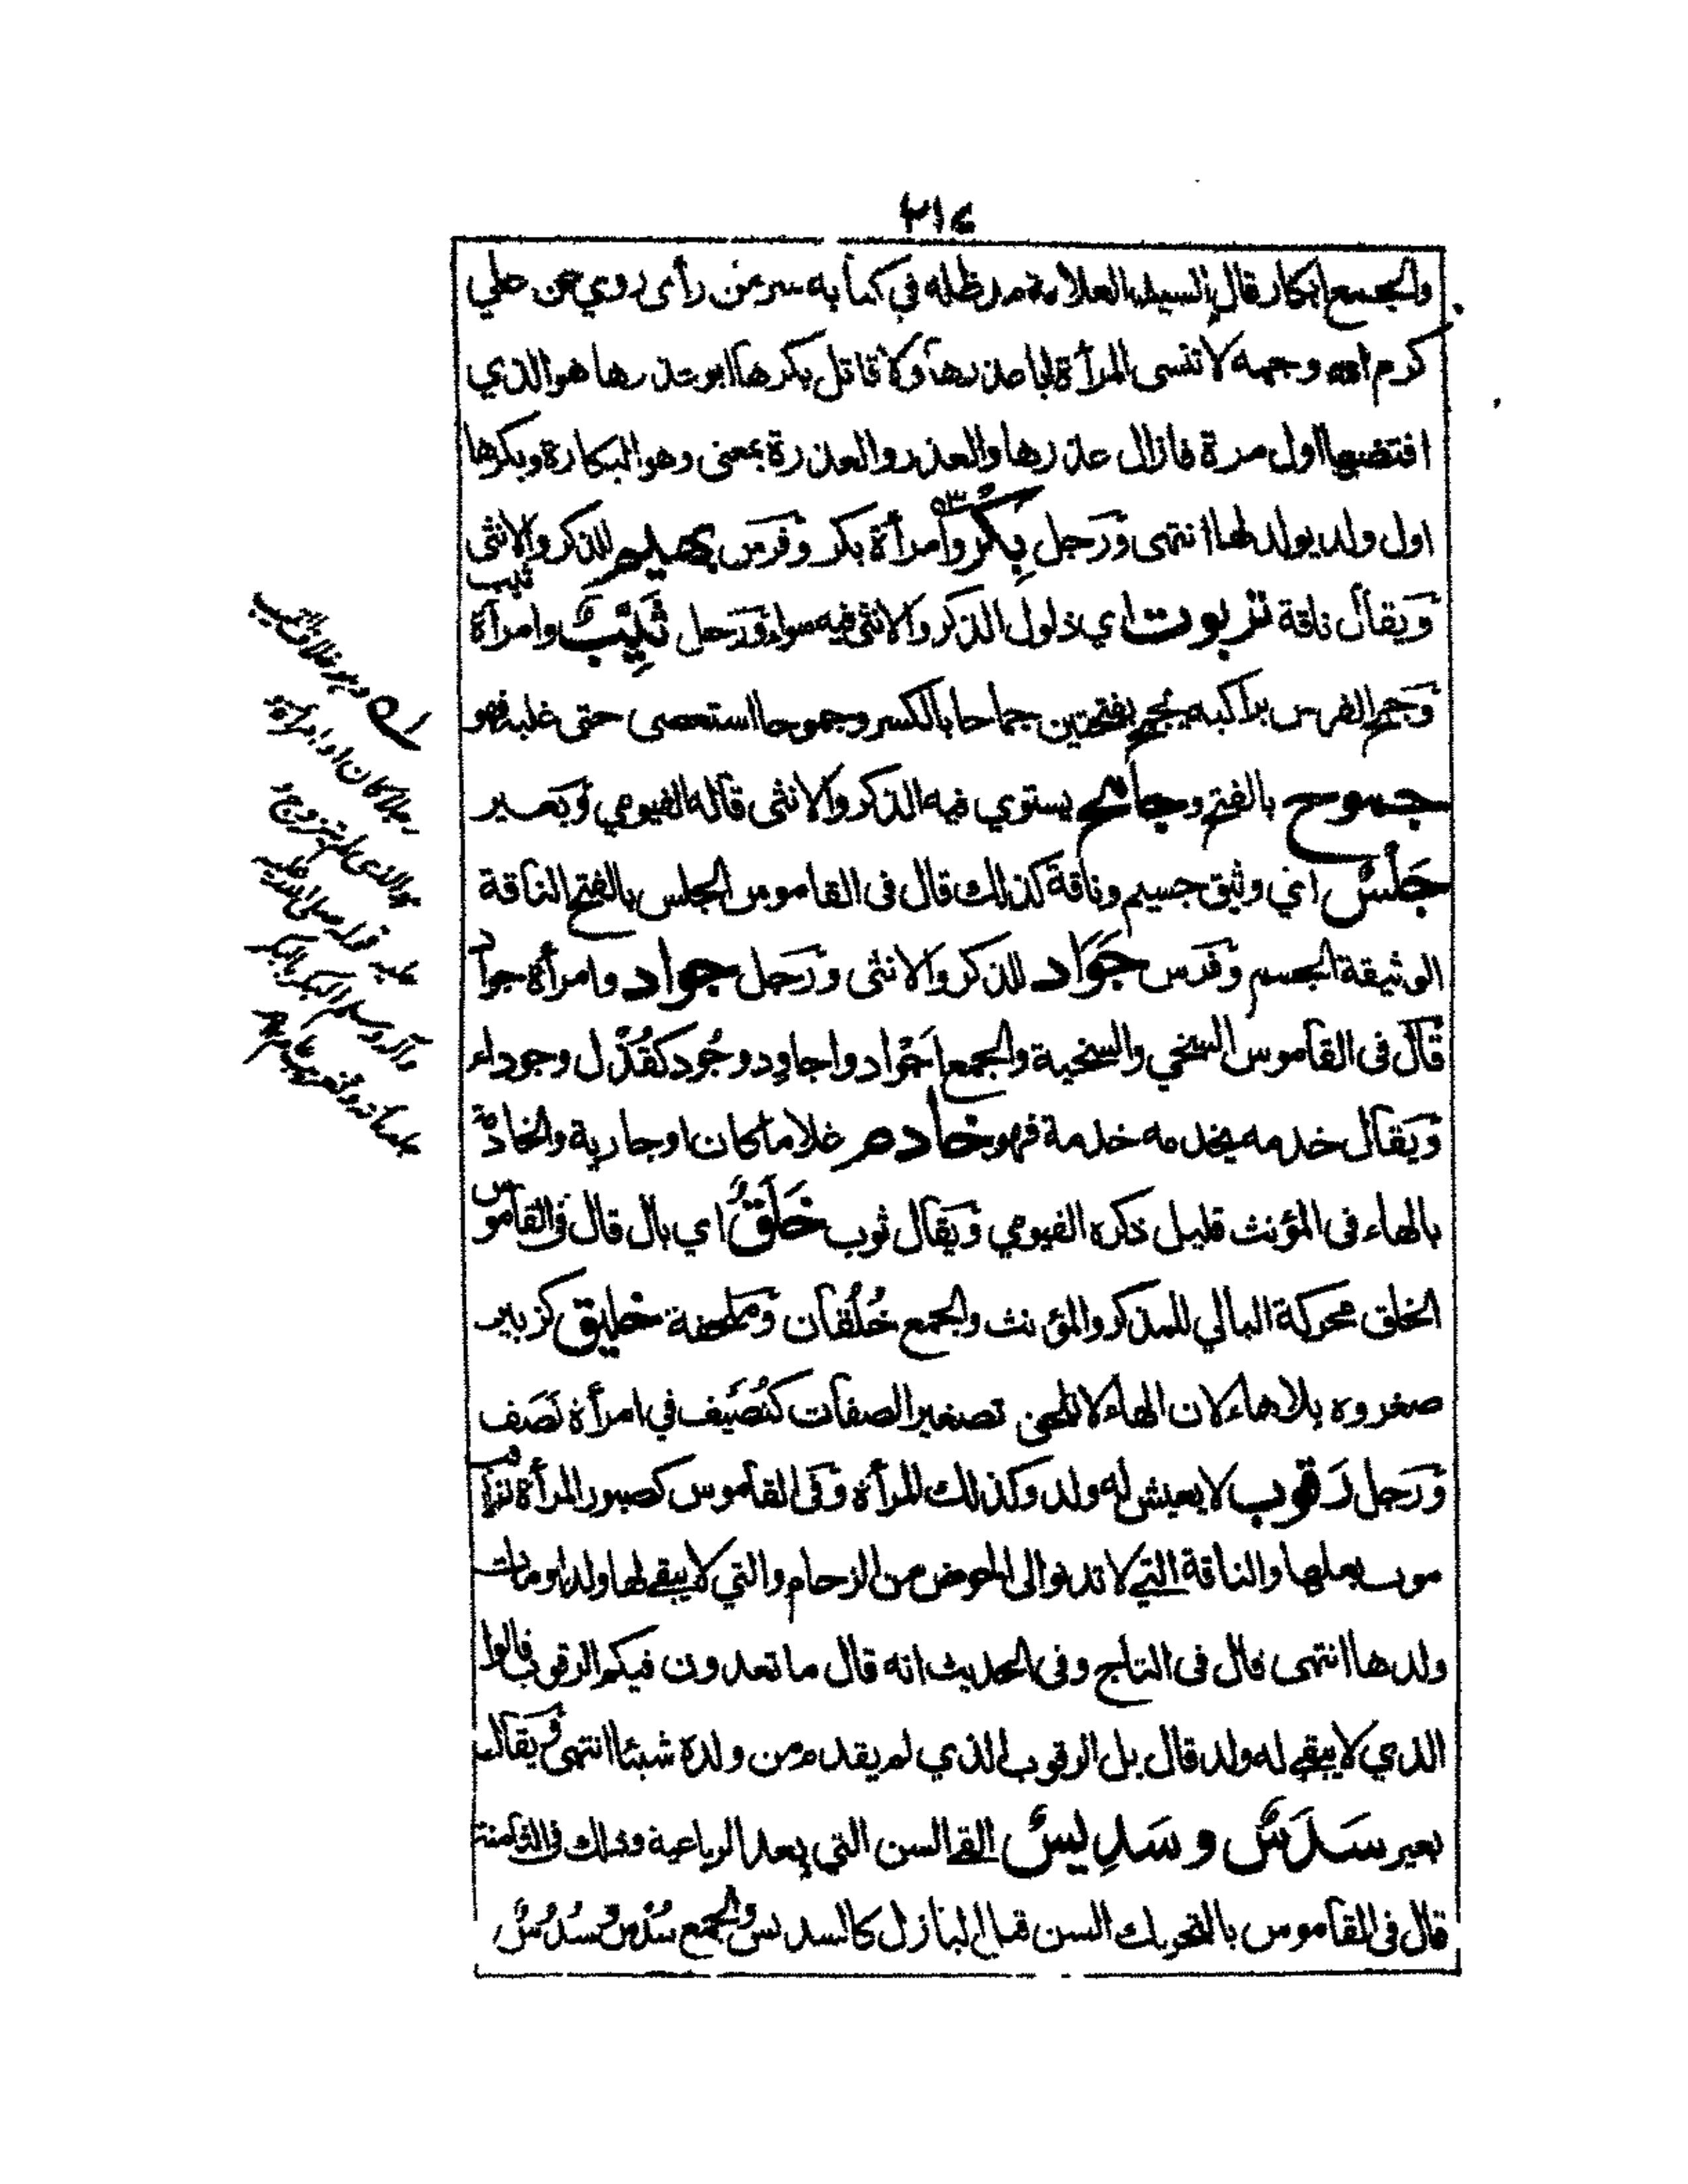 ٣١٤
والجمع ابكار قال السيد العلامة مد ظله في كتابه سر من رأى روي عن علي
كرم الله وجهه لا تنسى المرأة ابا عذرها ولا قاتل بكرها ابو عذرها هو الذي
افتضها اول مرة فازال عذرها والعذر والعذرة بمعنى وهو البكارة وبكرها
اول ولد يولد لها انتهى ورجل بِكْرٌ وامرأة بكر وفرس بهيم للذكر والانثى
ويقال ناقة تربوت اي ذلول الذكر والانثى فيه سواء ورجل ثَيِّبٌ وامرأة ثيب
وجمح الفرس براكبه يجمح بفتحتين جماحا بالكسر وجموحا استعصى حتى غلبه فهو
جموح بالفتح وجامح يستوي فيه الذكر والانثى قاله الفيومي وبعير
جَلْسٌ اي وثيق جسيم وناقة كذلك قال فى القاموس الجلس بالفتح الناقة
الوثيقة الجسم وفرس جَوَاد للذكر والانثى ورجل جواد وامرأة جواد
قال فى القاموس السخي والسخية والجمع اجواد واجاود وجُود كقُذُل وجوداء
ويقال خدمه يخدمه خدمة فهو خادم غلاما كان او جارية والخادمة
بالهاء فى المؤنث قليل ذكره الفيومي ويقال ثوب خَلَقٌ اي بال قال فى القاموس
الخلق محركة البالي للمذكر والمؤنث والجمع خُلْقان وملحفة خليق كزبير
صغروه بلا هاء لان الهاء لا تلحق تصغير الصفات كنُصَيف في امرأة نَصَف
ورجل رَقوب لا يعيش له ولد وكذلك المرأة وفى القاموس كصبور المرأة تراقب
موت بعلها والناقة التي لا تدنو الى الحوض من الزحام والتي لا يبقى لها ولد او مات
ولدها انتهى قال فى التاج وفى الحديث انه قال ما تعدون فيكم الرقوب قالوا
الذي لا يبقى له ولد قال بل الرقوب الذي لم يقدم من ولده شيئا انتهى ويقال
بعير سَدَسٌ وسَدِيسٌ القى السن التي بعد الرباعية وذلك فى الثامنة
قال فى القاموس بالتحريك السن قبل البازل كالسديس والجمع سُدْس وسُدُسٌ
وهو خلاف الثيب
رجلا كان او امرأة
قوله صلى الله عليه
وآله وسلم البكر بالبكر